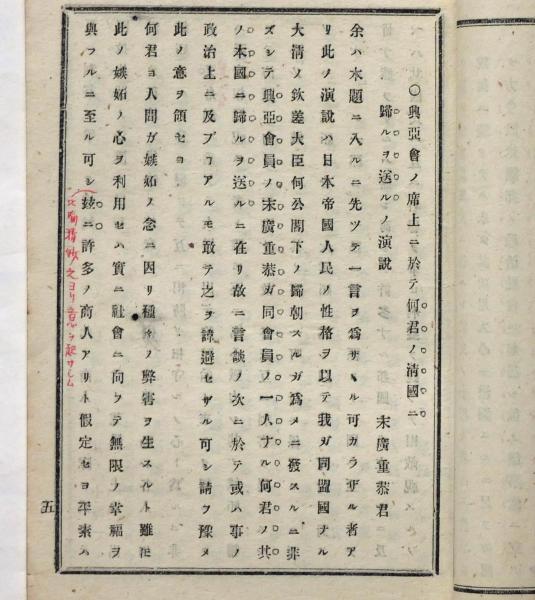 ○興亞會ノ席上ニ於テ何君ノ清國ニ
歸ルヲ送ルノ演説
末廣重恭君
余ハ本題ニ入ルニ先ツテ一言ヲ爲サヾル可カラザル者ア
リ此ノ演説ハ日本帝國人民ノ性格ヲ以テ我ガ同盟國ナル
大清ノ欽差大臣何公閣下ノ歸朝スルガ爲メニ發スルニ非
ズシテ興亞會員ノ末廣重恭ガ同會員ノ一人ナル何君ノ其
ノ本國ニ歸ルヲ送ルニ在リ故ニ言談ノ次ニ於テ或ハ事ノ
政治上ニ及ブコアルモ敢テ之ヲ諱避セザル可シ請フ豫メ
此ノ意ヲ領セヨ
何君ヨ人間ガ嫉妬ノ念ニ因リ種々ノ弊害ヲ生スルト雖𪜈
此ノ嫉妬ノ心ヲ利用セハ實ニ社會ニ向フテ無限ノ幸福ヲ
與フルニ至ル可シ玆ニ許多ノ商人アリト假定セヨ平素ハ
五